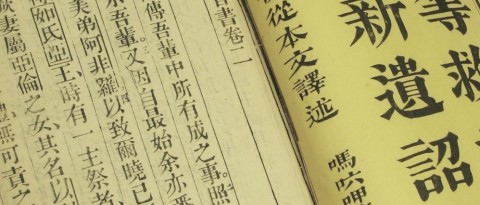 等救
新遺詔
從本文譯述
書卷二
傳吾輩中所有成之事。照
吾輩。又因自最始余亦悉
美弟阿非羅以致爾曉已
如氏亞王時有一主祭者
厥妻屬亞倫之女其名以
無可責之